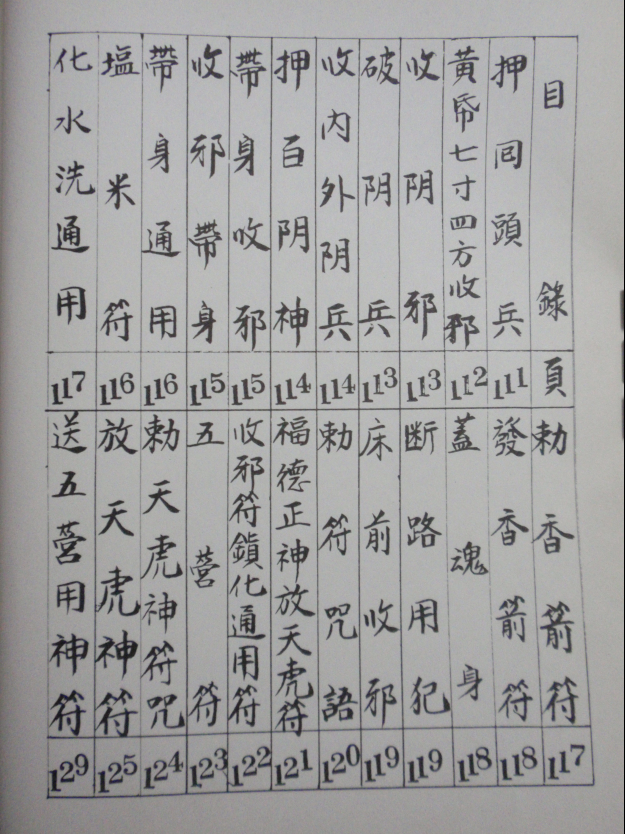 目錄 頁
押回頭兵 111
黃帋七寸四方收邪 112
收阴邪 113
破阴兵 113
收内外阴兵 114
押百阴神 114
帶身收邪 115
收邪帶身 115
帶身通用 116
塩米符 116
化水洗通用 117
勅香箭符 117
發香箭符 118
蓋魂身 118
断路用犯 119
床前收邪 119
勅符咒語 120
福德正神放天虎符 121
收邪符鎮化通用符 122
五营符 123
勅天虎神符咒 124
放天虎神符 125
送五营用神符 129